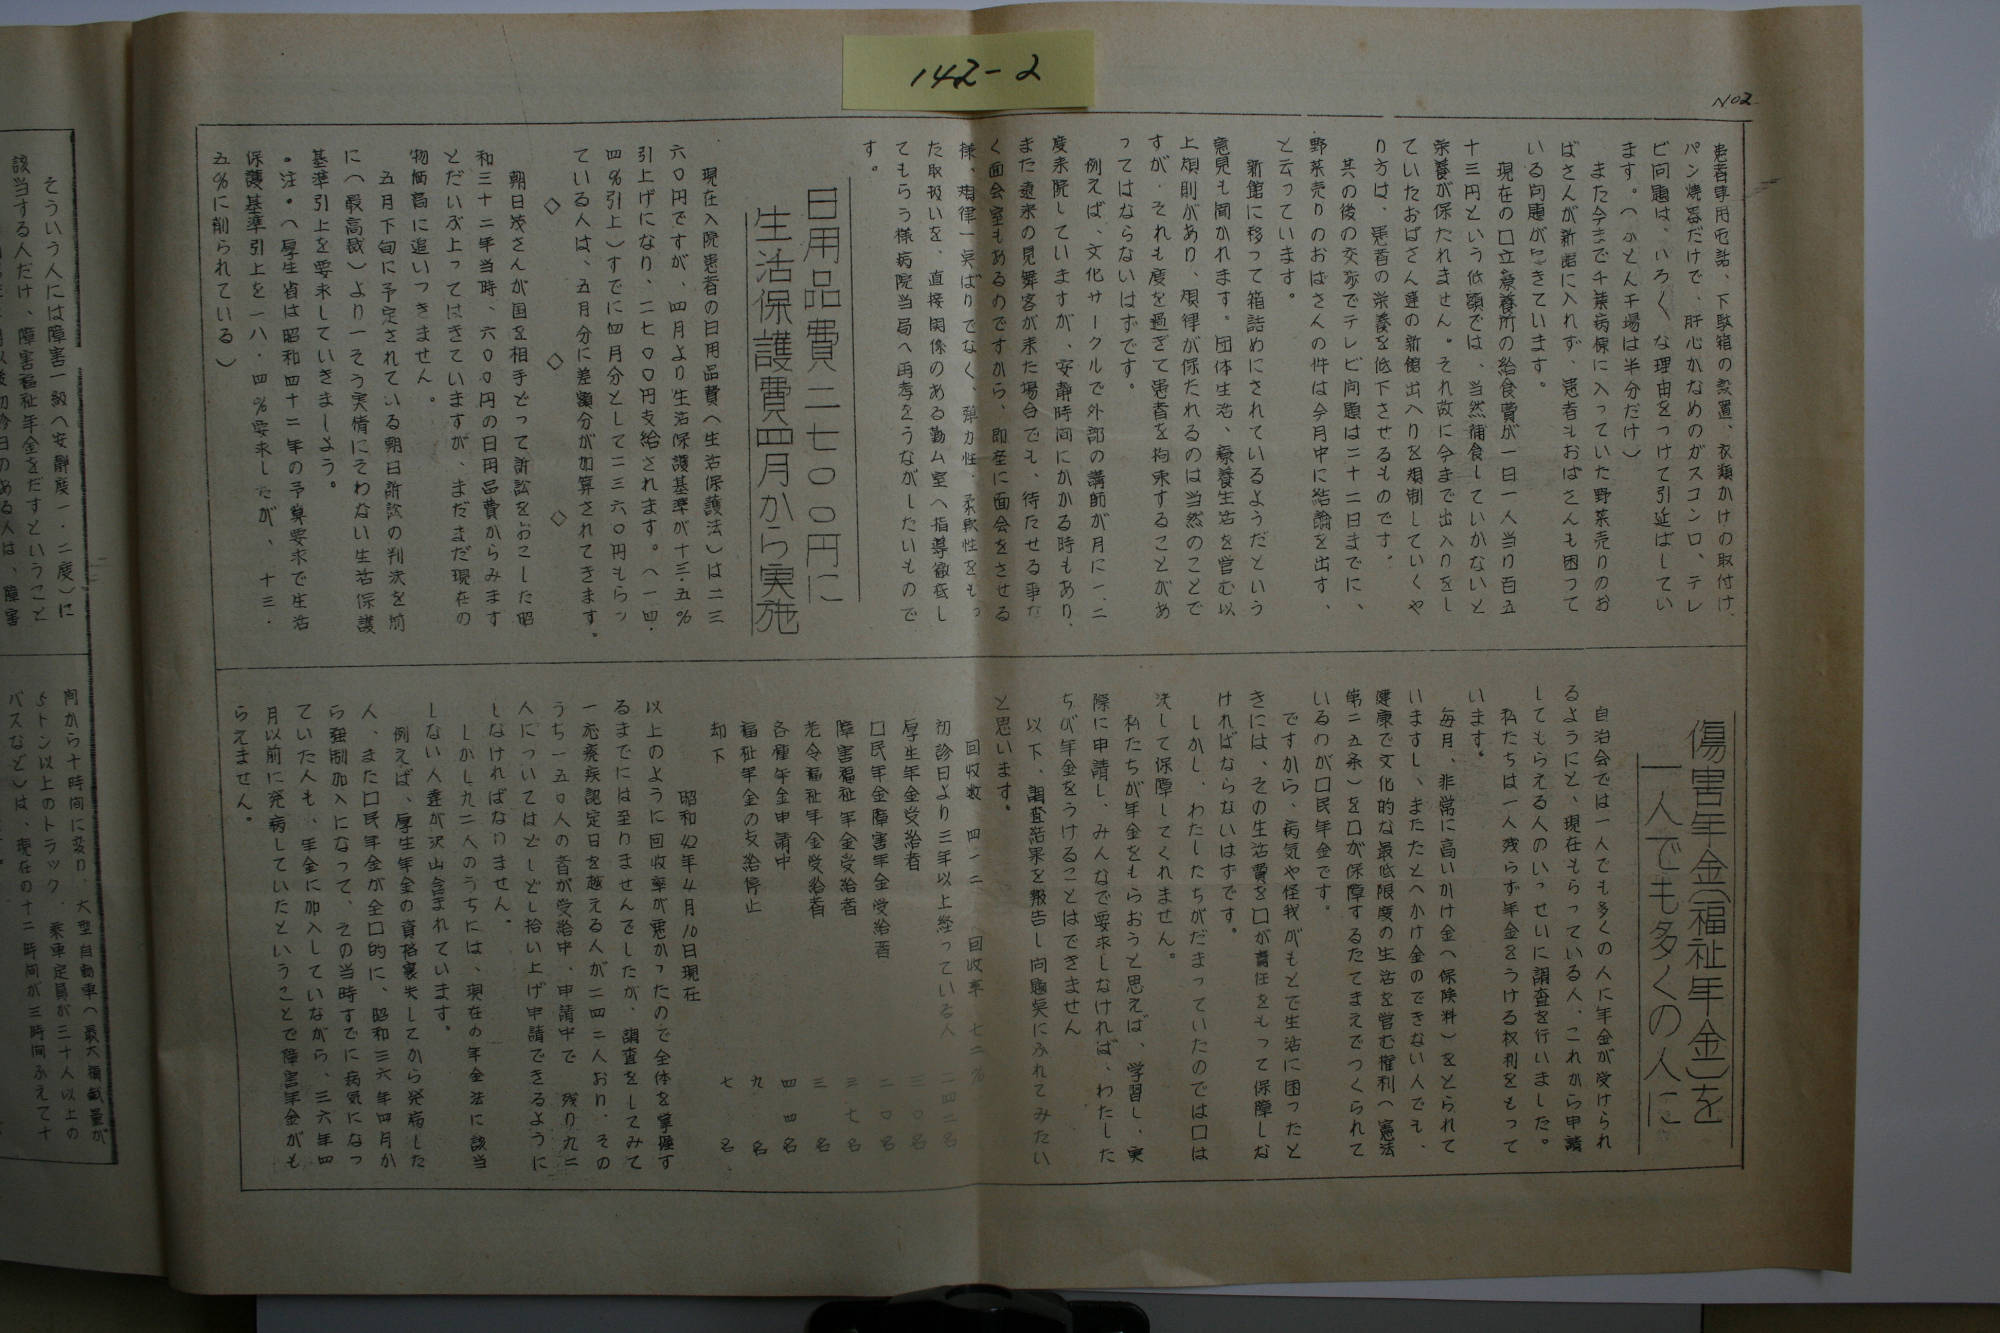 142-2
NO2
患者専用電話、下駄箱の設置、衣類かけの取付け、
パン焼器だけで、肝心かなめのガスコンロ、テレ
ビ問題は、いろくな理由をつけて引延ばしてい
ます。(ふとん干場は半分だけ)
また今まで千葉病棟に入っていた野菜売りのお
ばさんが新館に入れず、患者もおばさんも困って
いる問題がおきています。
現在の口立療養所の給食費が一日一人当り百五
十三円という低額では、当然補食していかないと
栄養が保たれません。それ故に今まで出入りをし
ていたおばさん達の新館出入りを規制していくや
り方は、患者の栄養を低下させるものです。
其の後の交渉でテレビ問題は二十二日までに、
野菜売りのおばさんの件は今月中に結論を出す、
と云っています。
新館に移って箱詰めにされているようだという
意見も聞かれます。団体生活、療養生活を営む以
上規則があり、規律が保たれるのは当然のことで
すが、それも度を過ぎて患者を拘束することがあ
ってはならないはずです。
例えば、文化サークルで外部の講師が月に一、二
度来院していますが、安静時間にかかる時もあり、
また遠来の見舞客が来た場合でも、待たせる事な
く面会室もあるのですから、即座に面会をさせる
様、規律一点ばりでなく、弾力性、柔軟性をもっ
た取扱いを、直接関係のある勤ム室へ指導徹底し
てもらう様病院当局へ再考をうながしたいもので
す。
日用品費二七〇〇円に
生活保護費四月から実施
現在入院患者の日用品費(生活保護法)は二三
六〇円ですが、四月より生活保護基準が十三・五%
引上げになり、二七〇〇円支給されます。(一四・
四%引上)すでに四月分として二三六〇円もらっ
ている人は、五月分に差額分が加算されてきます。
◇ ◇ ◇
朝日茂さんが国を相手どって訴訟をおこした昭
和三十二年当時、六〇〇円の日用品費からみます
とだいぶ上ってはきていますが、まだまだ現在の
物価高に追いつきません。
五月下旬に予定されている朝日訴訟の判決を前
に(最高裁)より一そう実情にそわない生活保護
基準引上を要求していきましょう。
・注・(厚生省は昭和四十二年の予算要求で生活
保護基準引上を一八・四%要求したが、十三・
五%に削られている)
傷害年金(福祉年金)を
一人でも多くの人に
自治会では一人でも多くの人に年金が受けられ
るようにと、現在もらっている人、これから申請
してもらえる人のいっせいに調査を行いました。
私たちは一人残らず年金をうける权利をもって
います。
毎月、非常に高いかけ金(保険料)をとられて
いますし、またたとへかけ金のできない人でも、
健康で文化的な最低限度の生活を営む権利(憲法
第二五条)を口が保障するたてまえでつくられて
いるのが口民年金です。
ですから、病気や怪我がもとで生活に困ったと
きには、その生活費を口が責任をもって保障しな
ければならないはずです。
しかし、わたしたちがだまっていたのでは口は
決して保障してくれません。
私たちが年金をもらおうと思えば、学習し、実
際に申請し、みんなで要求しなければ、わたした
ちが年金をうけることはできません
以下、調査結果を報告し問題点にふれてみたい
と思います。
回収数 四一二 回収率 七二%
初診日より三年以上経っている人 二四二名
厚生年金受給者 三〇名
口民年金障害年金受給者 二〇名
障害福祉年金受給者 三七名
老令福祉年金受給者 三名
各種年金申請中 四四名
福祉年金の支給停止 九名
却下 七名
昭和42年4月10日現在
以上のように回收率が悪かったので全体を掌握す
るまでには至りませんでしたが、調査をしてみて
一応廃疾認定日を越える人が二四二人おり、その
うち一五〇人の者が受給中、申請中で 残り九二
人についてはどしどし拾い上げ申請できるように
しなければなりません。
しかし九二人のうちには、現在の年金法に該当
しない人達が沢山含まれています。
例えば、厚生年金の資格喪失してから発病した
人、また口民年金が全口的に、昭和三六年四月か
ら強制加入になって、その当時すでに病気になっ
ていた人も、年金に加入していながら、三六年四
月以前に発病していたということで障害年金がも
らえません。
そういう人には障害一級(安静度一・二度)に
該当する人だけ、障害福祉年金をだすということ
間から十時間に変り、大型自動車(最大積載量が
5トン以上のトラック、乗車定員が三十人以上の
バスなど)は、現在の十二時間が三時間ふえて十